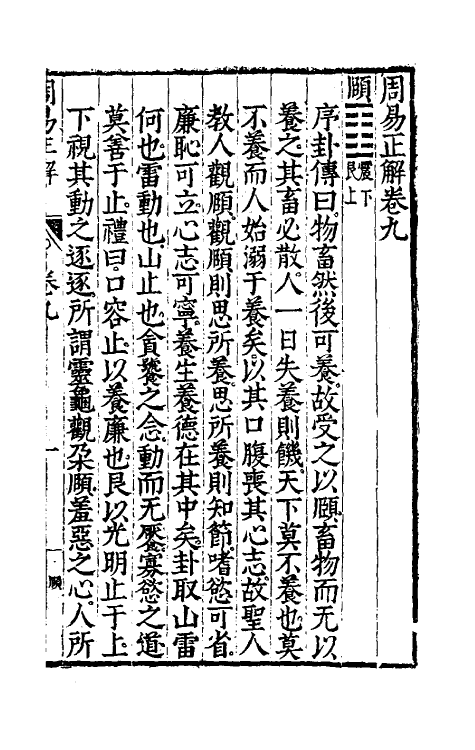 周易正解卷九
頤 震下 艮上
序卦傳曰物畜然後可養故受之以頤畜物而无以
養之其畜必散人一日失養則饑天下莫不養也莫
不養而人始溺于養矣以其口腹喪其心志故聖人
教人觀頤觀頤則思所養思所養則知節嗜慾可省
廉恥可立心志可寧養生養德在其中矣卦取山雷
何也雷動也山止也貪饕之念動而无饜寡慾之道
莫善于止禮曰口容止以養廉也艮以光明止于上
下視其動之逐逐所謂靈龜觀朶頤羞惡之心人所
周易正解
卷九
一
頤